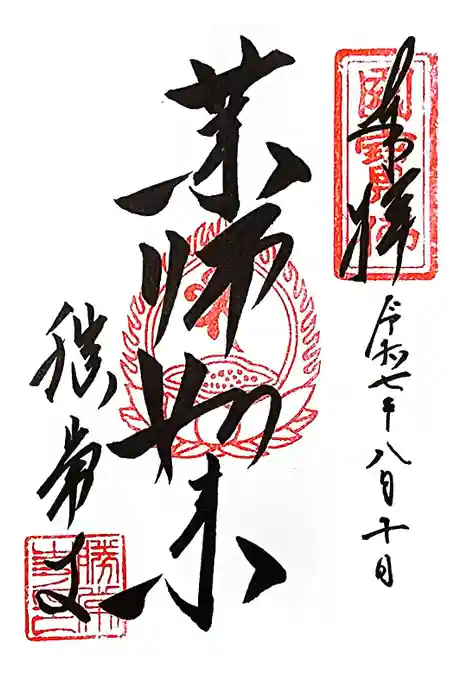 奉拝
國寶
令和七年八月十日
薬師如来
勝常寺
勝常寺印